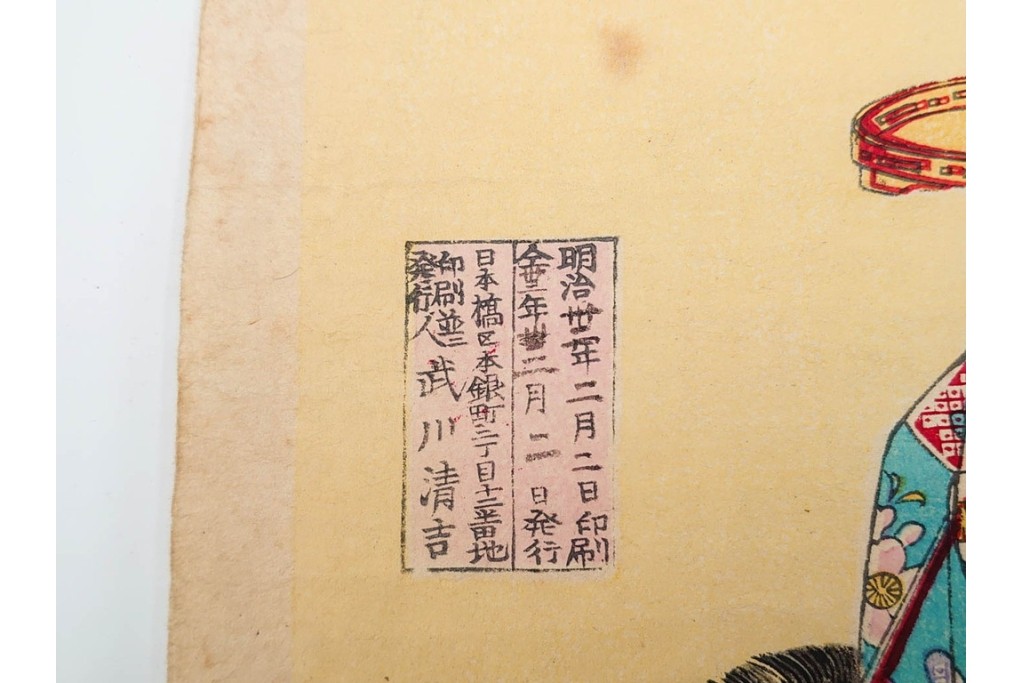 明治廿二年二月二日印刷
仝 年 二月二日発行
日本橋区本銀町二丁目十二番地
印刷並ニ
発行人 武川清吉